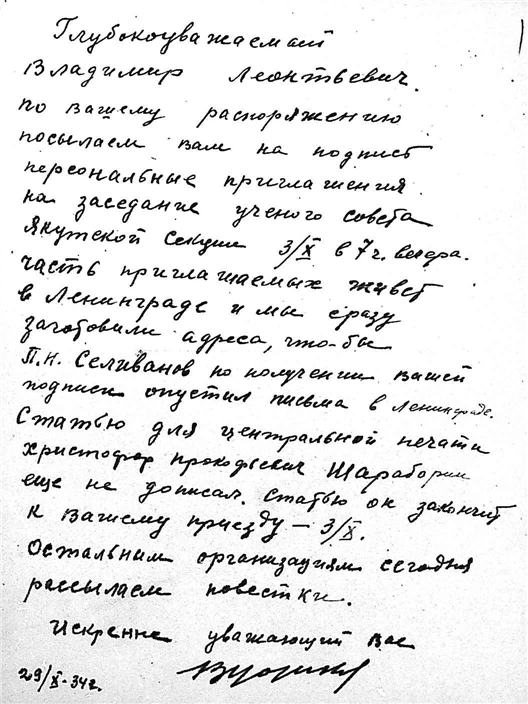 Глубокоуважаемый
Владимир Леонтьевич.
по вашему распоряжению
посылаем вам на подпись
персональные приглашения
на заседание ученого совета
Якутской секции 3/X в 7 ч. вечера.
часть приглашаемых живет
в Ленинграде и мы сразу
заготовили адреса, что-бы
П.Н. Селиванов по получении вашей
подписи опустил письма в Ленинграде.
Статью для центральной печати
христофор прокофьевич Шараборин
еще не дописал. статью он закончит
к вашему приезду – 3/X.
Остальным организациям сегодня
рассылаем повестки.
Искренне уважающий Вас
29/X-34г.